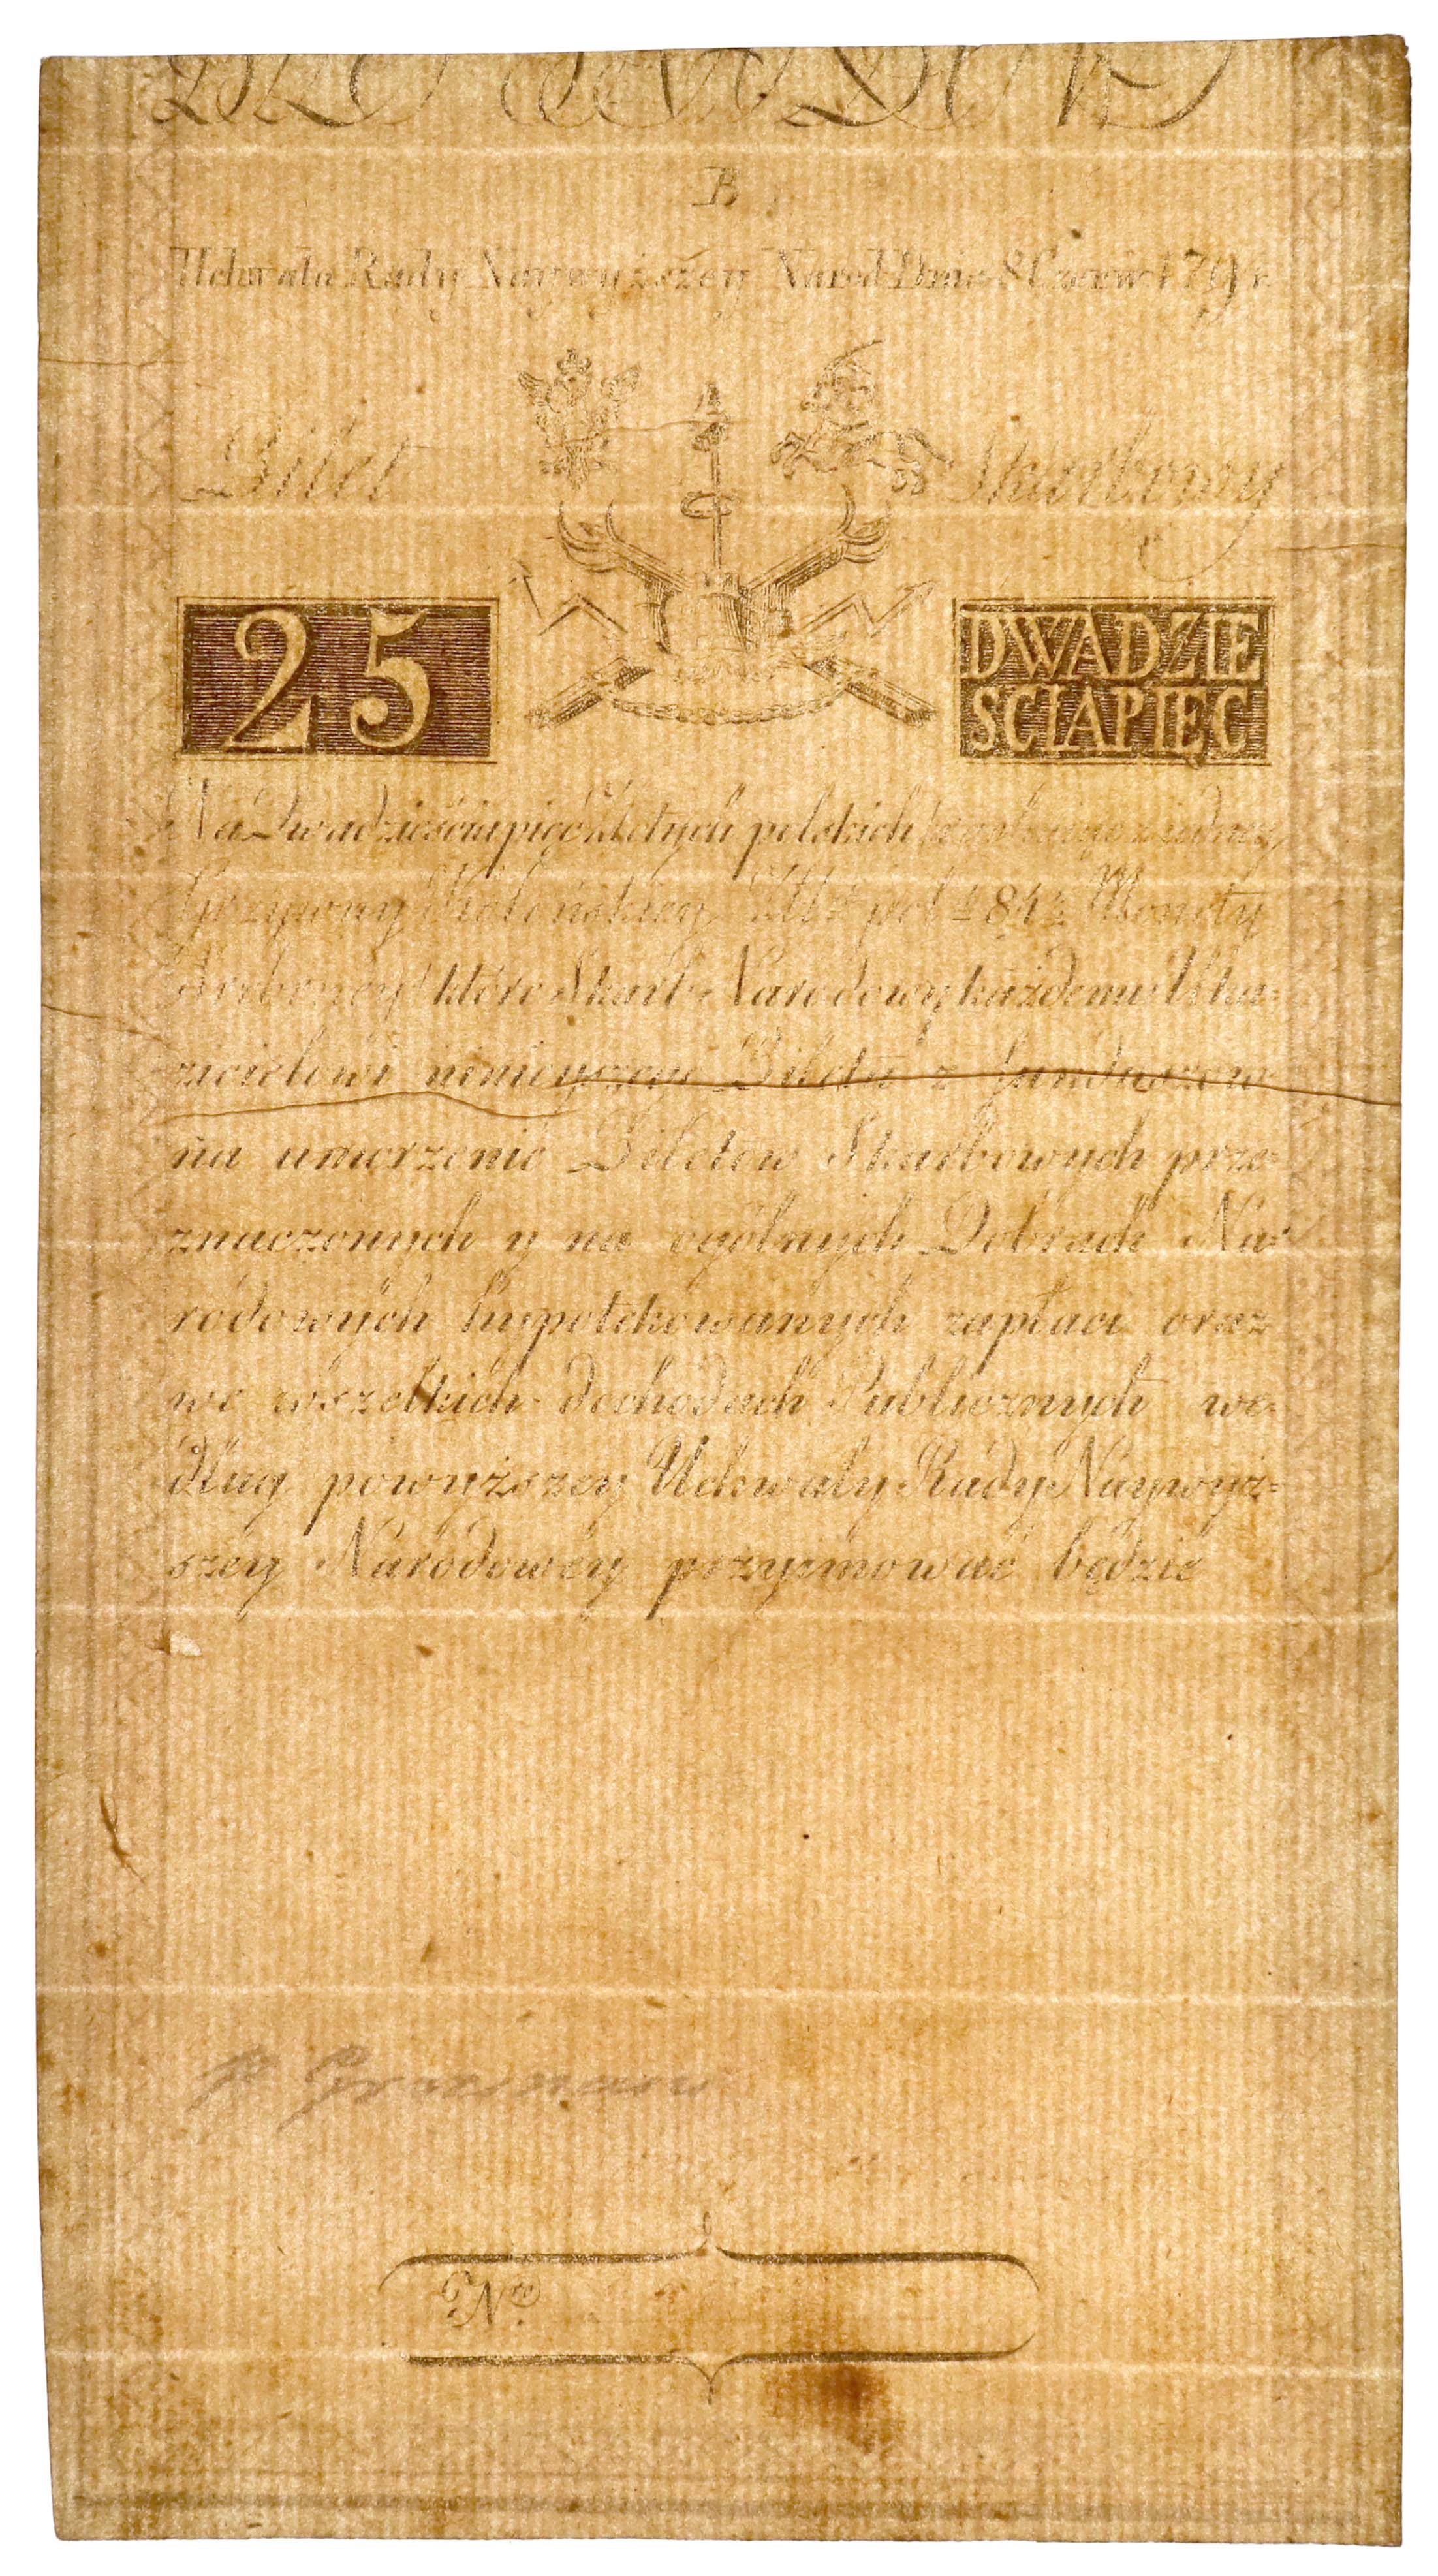 B
Uchwała Rady Naywyższey Narod: Dnia 8 Czerw: 1794 r.
Bilet Skarbowy
25
DWADZIE
SCIAPIĘC
Na Dwadzieściapięć Złotych polskich
Grzywny Kolońskiey Złł: pol: 84½ Monety
Srebrney które Skarb Narodowy każdemu Uka=
zicielowi ninieyszego Biletu z funduszow
na umorzenie Biletow Skarbowych prze=
znaczonych y na ogolnych Dobrach Na=
rodowych hypotekowanych zapłaci oraz
we wszelkich dochodach Publicznych we=
dług powyższey Uchwały Rady Naywyż=
szey Narodowey przyimować będzie
Nro